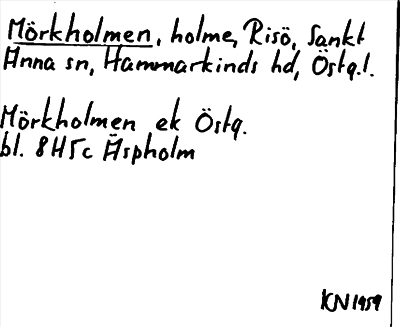 Mörkholmen, holme, Risö, Sankt
Anna sn, Hammarkinds hd, Östg.l.
Mörkholmen ek Östg.
bl. 8H5c Äspholm
KN 1959